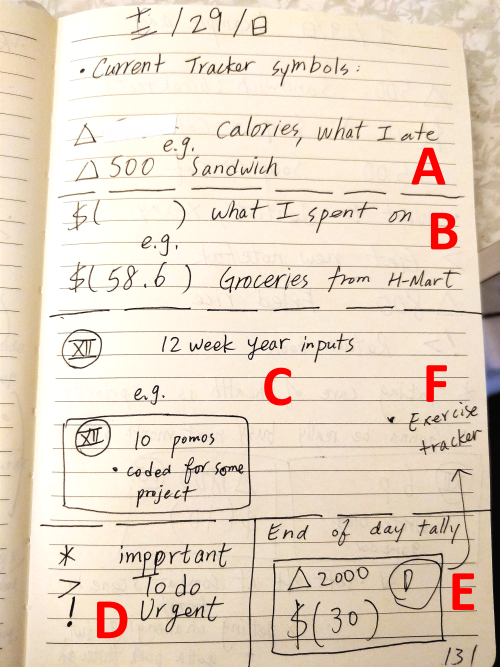 十二/29/日
• Current Tracker symbols:
△ Calories, what I ate
e.g.
△ 500 Sandwich
A
$( ) what I spent on
B
e.g.
$(58.6) Groceries from H-Mart
XII 12 week year inputs
C
F
e.g.
• Exercise
tracker
XII 10 pomos
• coded for some
project
* important
> To do
! Urgent
D
End of day tally
△ 2000 D
$(30)
E
131